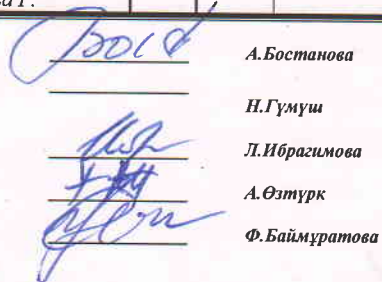 А.Бостанова
Н.Гүмүш
Л.Ибрагимова
А.Өзтүрк
Ф.Баймұратова